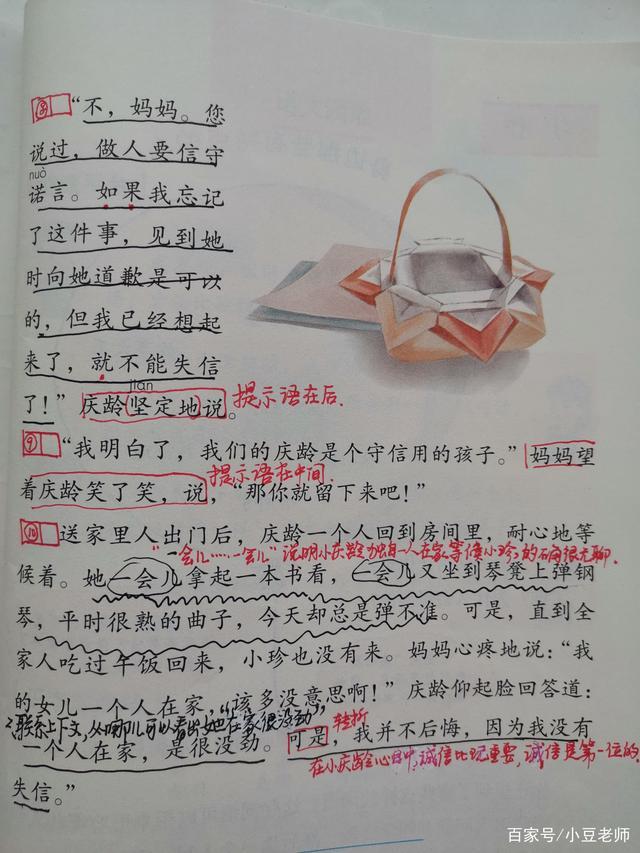 ⑧ “不，妈妈。您
说过，做人要信守
nuò
诺言。如果我忘记
了这件事，见到她
时向她道歉是可以
的，但我已经想起
来了，就不能失信
jiān
了！”庆龄坚定地说。提示语在后.
⑨ “我明白了，我们的庆龄是个守信用的孩子。”妈妈望
提示语在中间.
着庆龄笑了笑，说，“那你就留下来吧！”
⑩ 送家里人出门后，庆龄一个人回到房间里，耐心地等
“一会儿……一会儿”说明小庆龄独自一人在家等候小珍,的确很无聊.
候着。她一会儿拿起一本书看，一会儿又坐到琴凳上弹钢
琴，平时很熟的曲子，今天却总是弹不准。可是，直到全
家人吃过午饭回来，小珍也没有来。妈妈心疼地说：“我
的女儿一个人在家，该多没意思啊！”庆龄仰起脸回答道：
2.联系上下文,从哪儿可以看出她在家很没劲”, 转折
“一个人在家，是很没劲。可是，我并不后悔，因为我没有
在小庆龄心目中,诚信比玩重要,诚信是第一位的.
失信。”
百家号/小豆老师